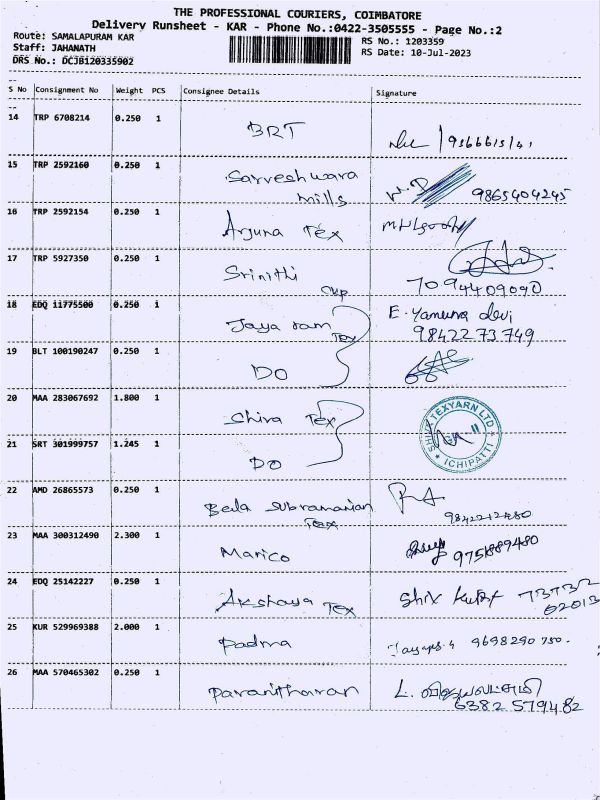 THE PROFESSIONAL COURIERS, COIMBATORE
Delivery Runsheet - KAR - Phone No.:0422-3505555 - Page No.:2
Route: SAMALAPURAM KAR
RS No.: 1203359
Staff: JAHANATH
RS Date: 10-Jul-2023
DRS No.: DCJB120335902
S No Consignment No Weight PCS Consignee Details Signature
14 TRP 6708214 0.250 1 BRT
15 TRP 2592160 0.250 1 Sarveshwara
mills 9865404245
16 TRP 2592154 0.250 1 Arjuna Tex
17 TRP 5927350 0.250 1 Srinithi
7094409090
18 EDQ 11775500 0.250 1 Jaya ram Tex E. Yamuna devi
9842273749
19 BLT 100190247 0.250 1 DO
20 MAA 283067692 1.800 1 Shiva Tex
SHIVA TEXYARN LTD
ICHIPATTI
21 SRT 301999757 1.245 1 DO
22 AMD 26865573 0.250 1 Bala Subramanian
Tex 9842212480
23 MAA 300312490 2.300 1 Marico 9751889480
24 EDQ 25142227 0.250 1 Akshaya Tex 73732
02013
25 KUR 529969388 2.000 1 Padma 9698290750.
26 MAA 570465302 0.250 1 Paranitharan L. விஜயலட்சுமி
6382 579482